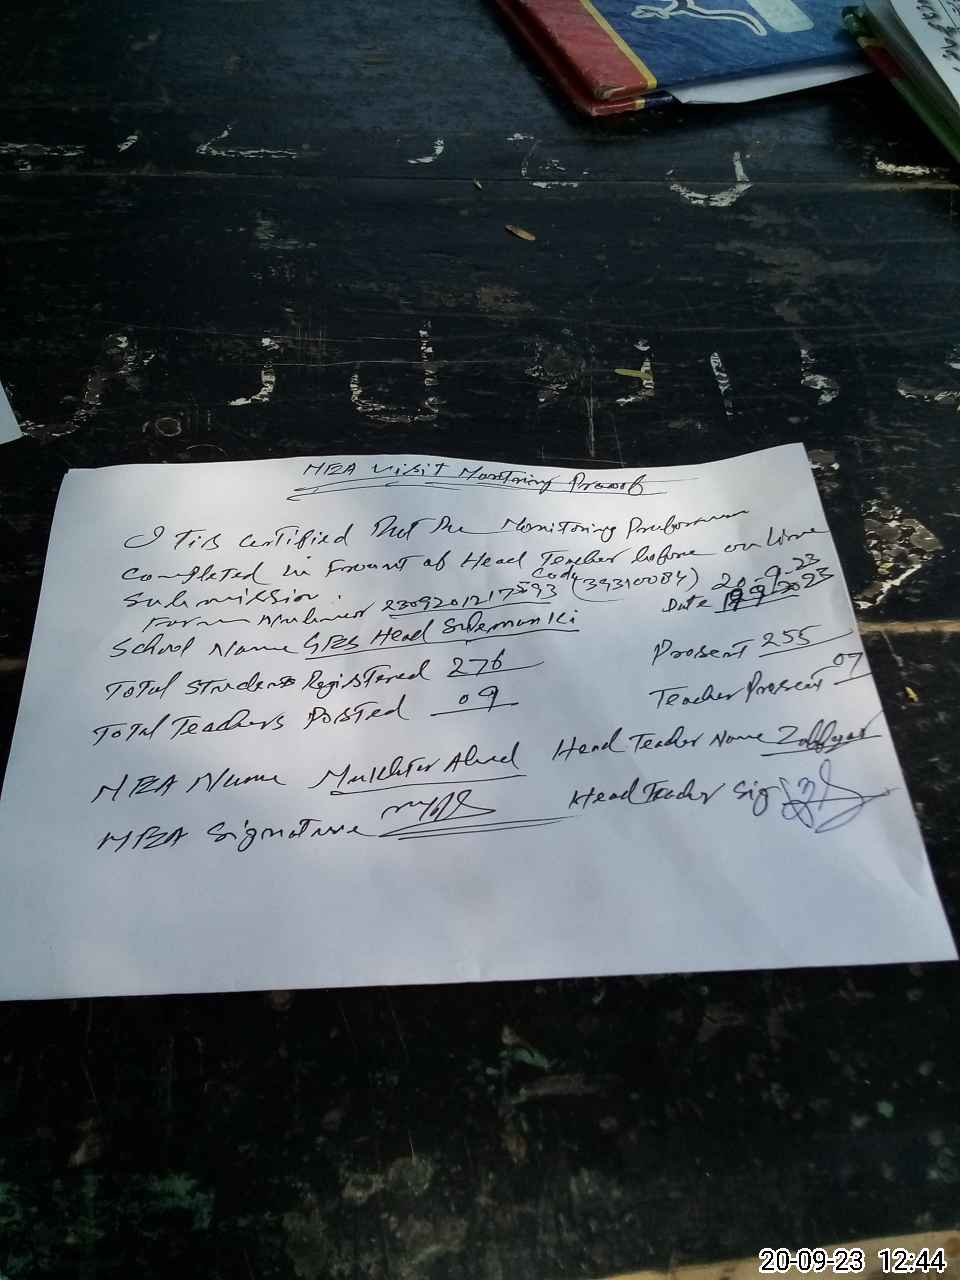 MEA Visit Monitoring Proof
I Tis Certified That The Monitoring Proforma
Completed in Front of Head Teacher before on line
Submission.
Form Number 2309201217593 Code (39310084) Date 20-9-23
School Name GES Head Sulemanki
Total Students Registered 276 Present 255
Total Teachers Posted 09 Teacher Present 07
MEA Name Mukhtar Ahmed Head Teacher Name Zulfiqar
MEA Signature Head Teacher Sig
20-09-23 12:44